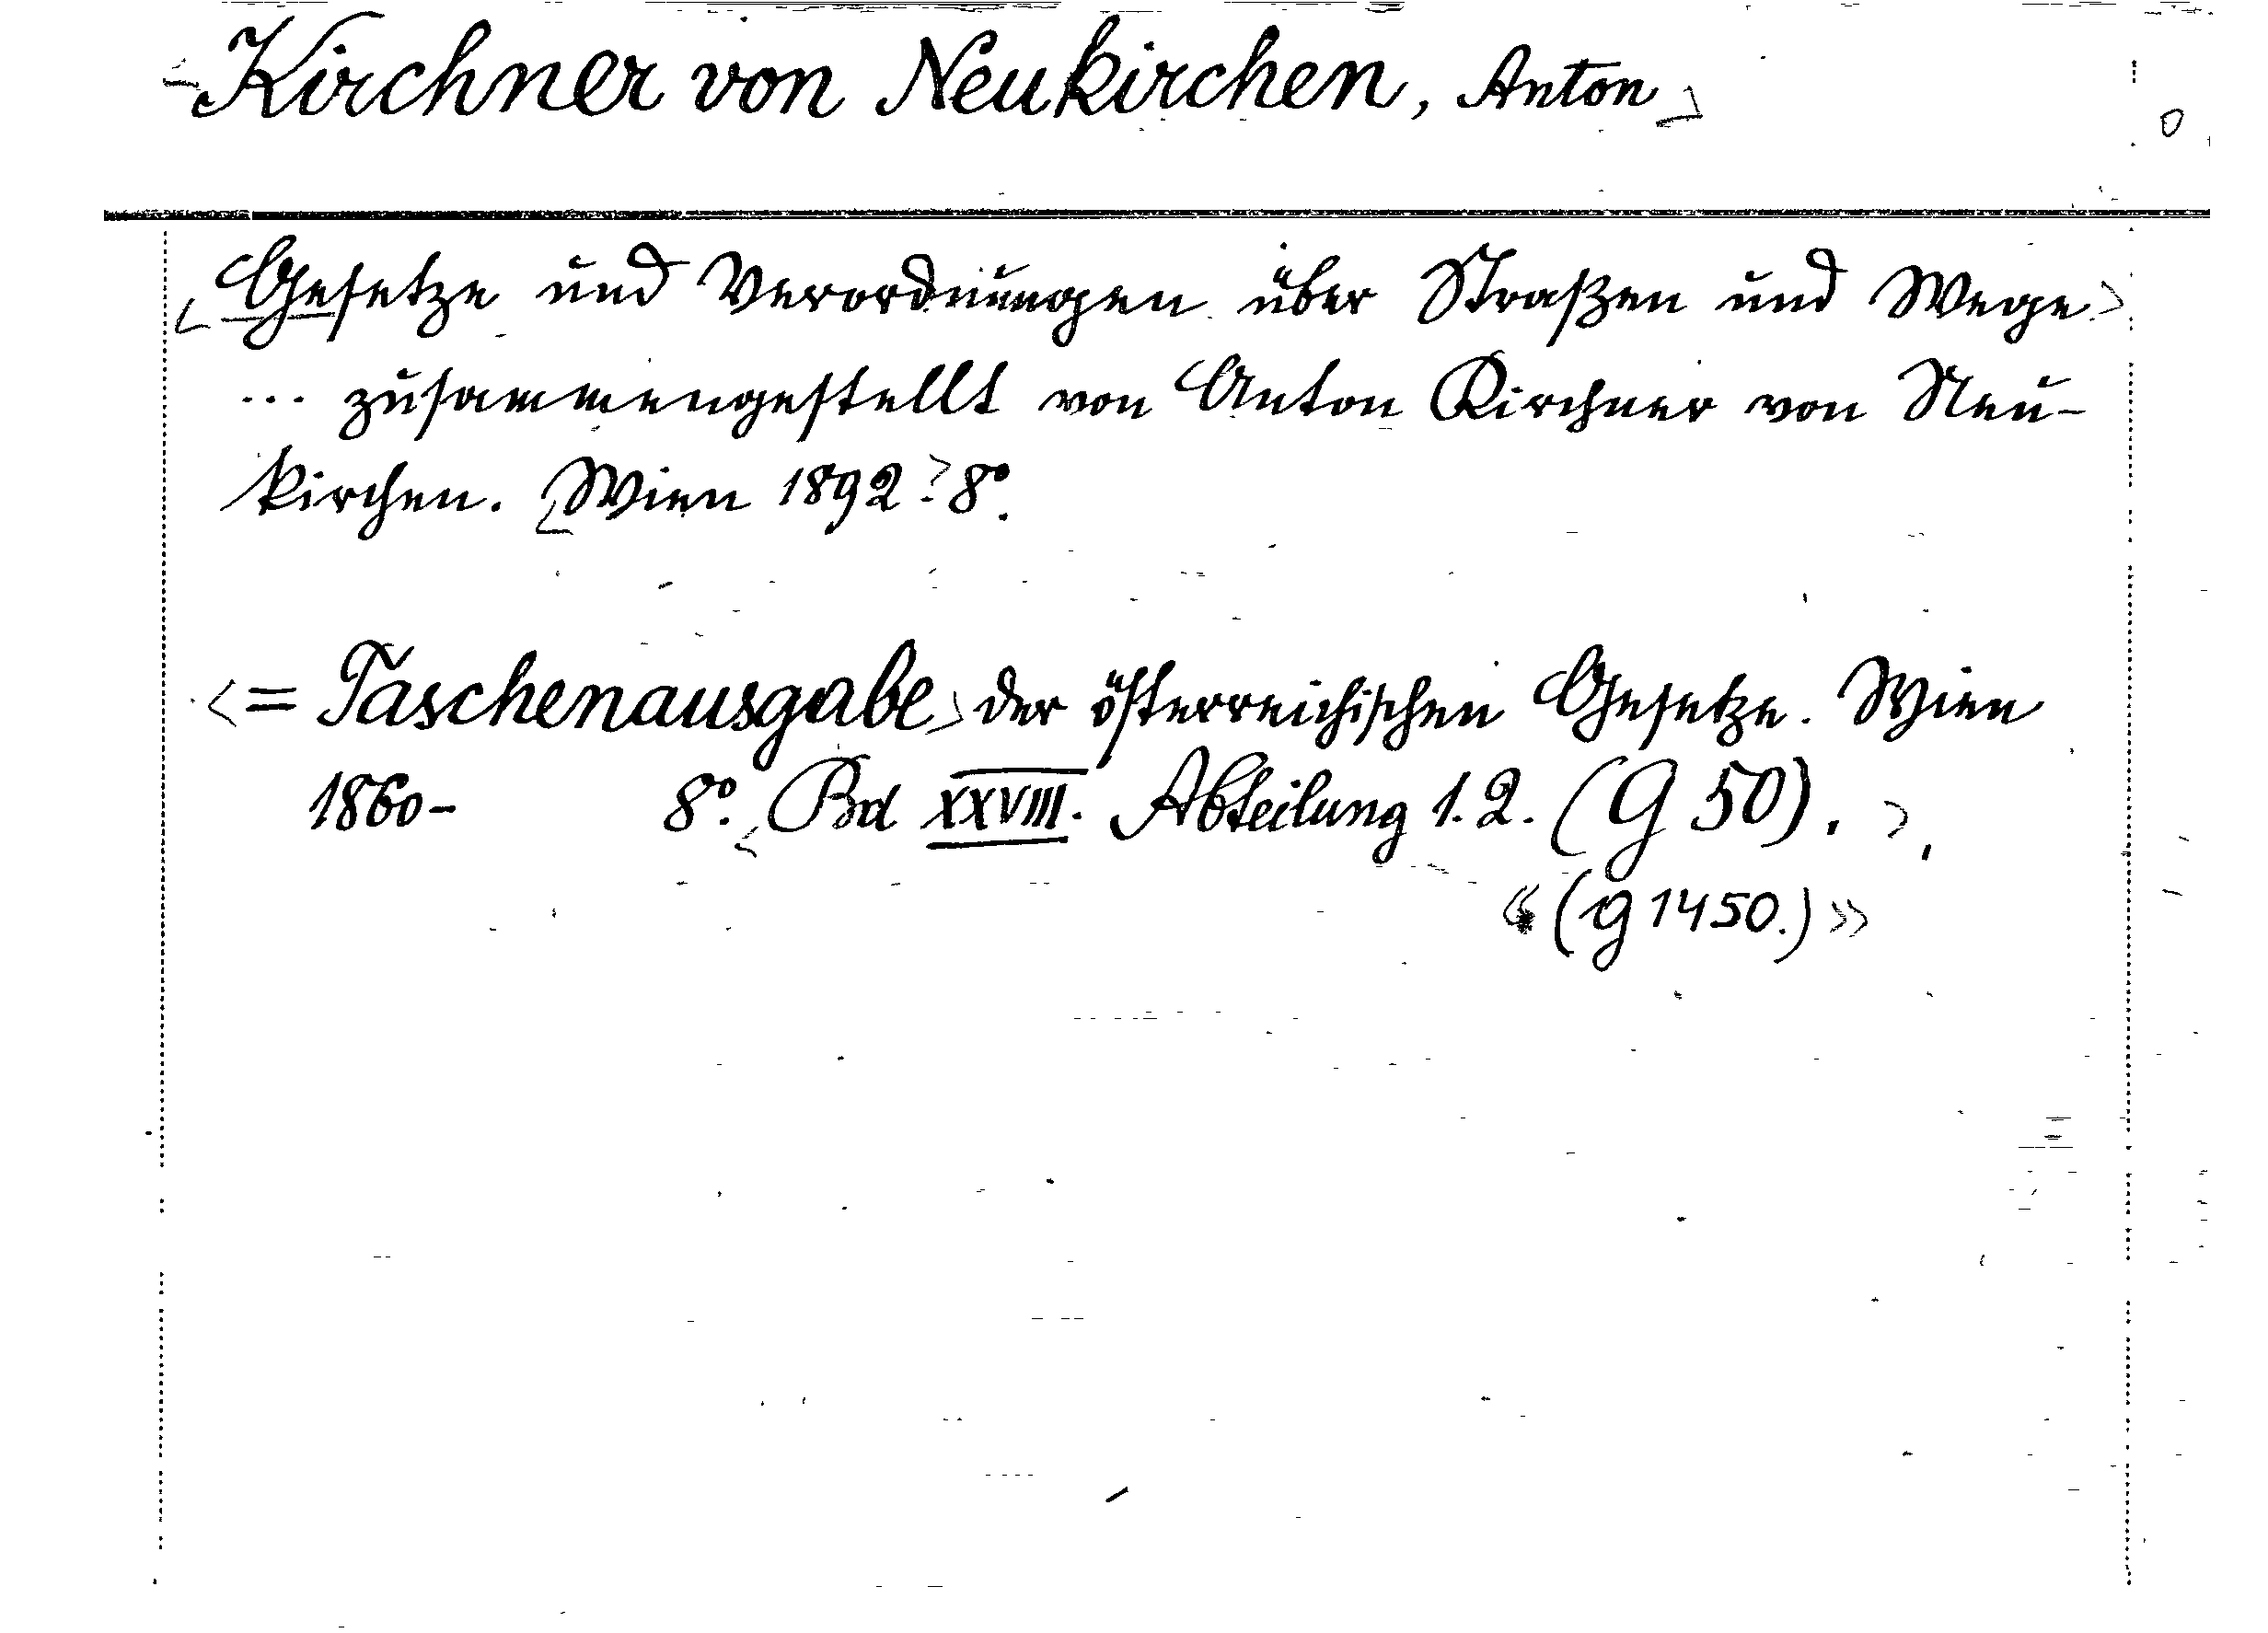 Kirchner von Neukirchen, Anton
Gesetze und Verordnungen über Straßen und Wege
... zusammengestellt von Anton Kirchner von Neu-
kirchen. Wien 1892. 8º.
<= Taschenausgabe> der österreichischen Gesetze. Wien
1860- 8º. <Bd XXVIII. Abteilung 1.2. (G 50). >
«(g 1450.)»